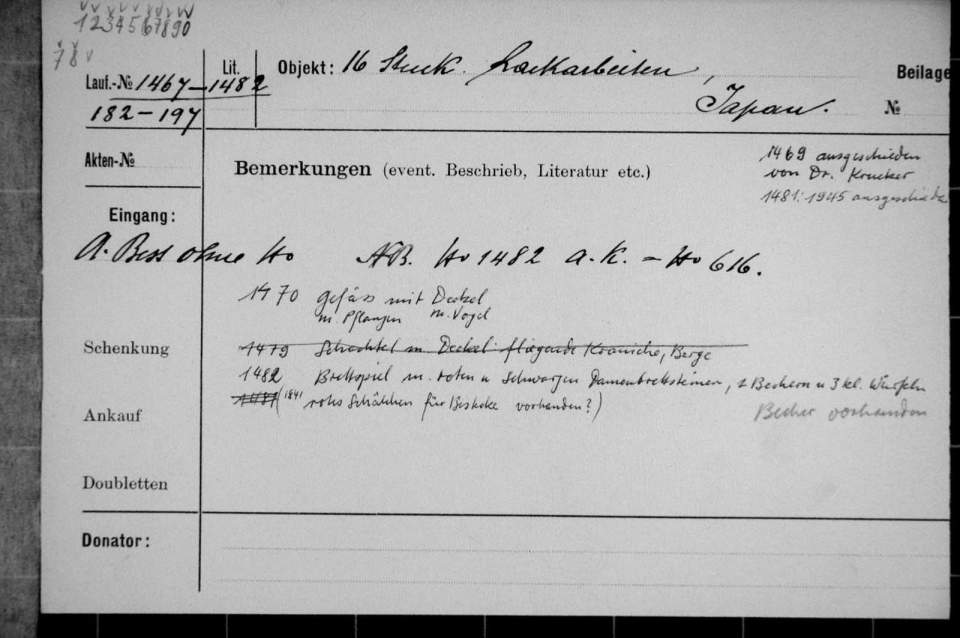 1234567890
78
Lauf.-№ 1467–1482
182–197
Lit.
Objekt: 16 Stuck Lackarbeiten,
Japan.
Beilage
№
Akten-№
Bemerkungen (event. Beschrieb, Literatur etc.)
1469 ausgeschieden
von Dr. Krucker
1481: 1945 ausgeschiede
Eingang:
A. Best ohne No NB. No 1482 a. K. = No 616.
1470 Gefäss mit Deckel
m. Pflanzen m. Vogel
Schenkung
1479 Schachtel m Deckel: fliegende Kraniche, Berge
1482 Brettspiel m. roten u schwarzen Damenbrettsteinen, 2 Bechern u 3 kl. Würfeln
1481 (1841 rotes Schälchen für vorhanden?)
Becher vorhanden
Ankauf
Doubletten
Donator: